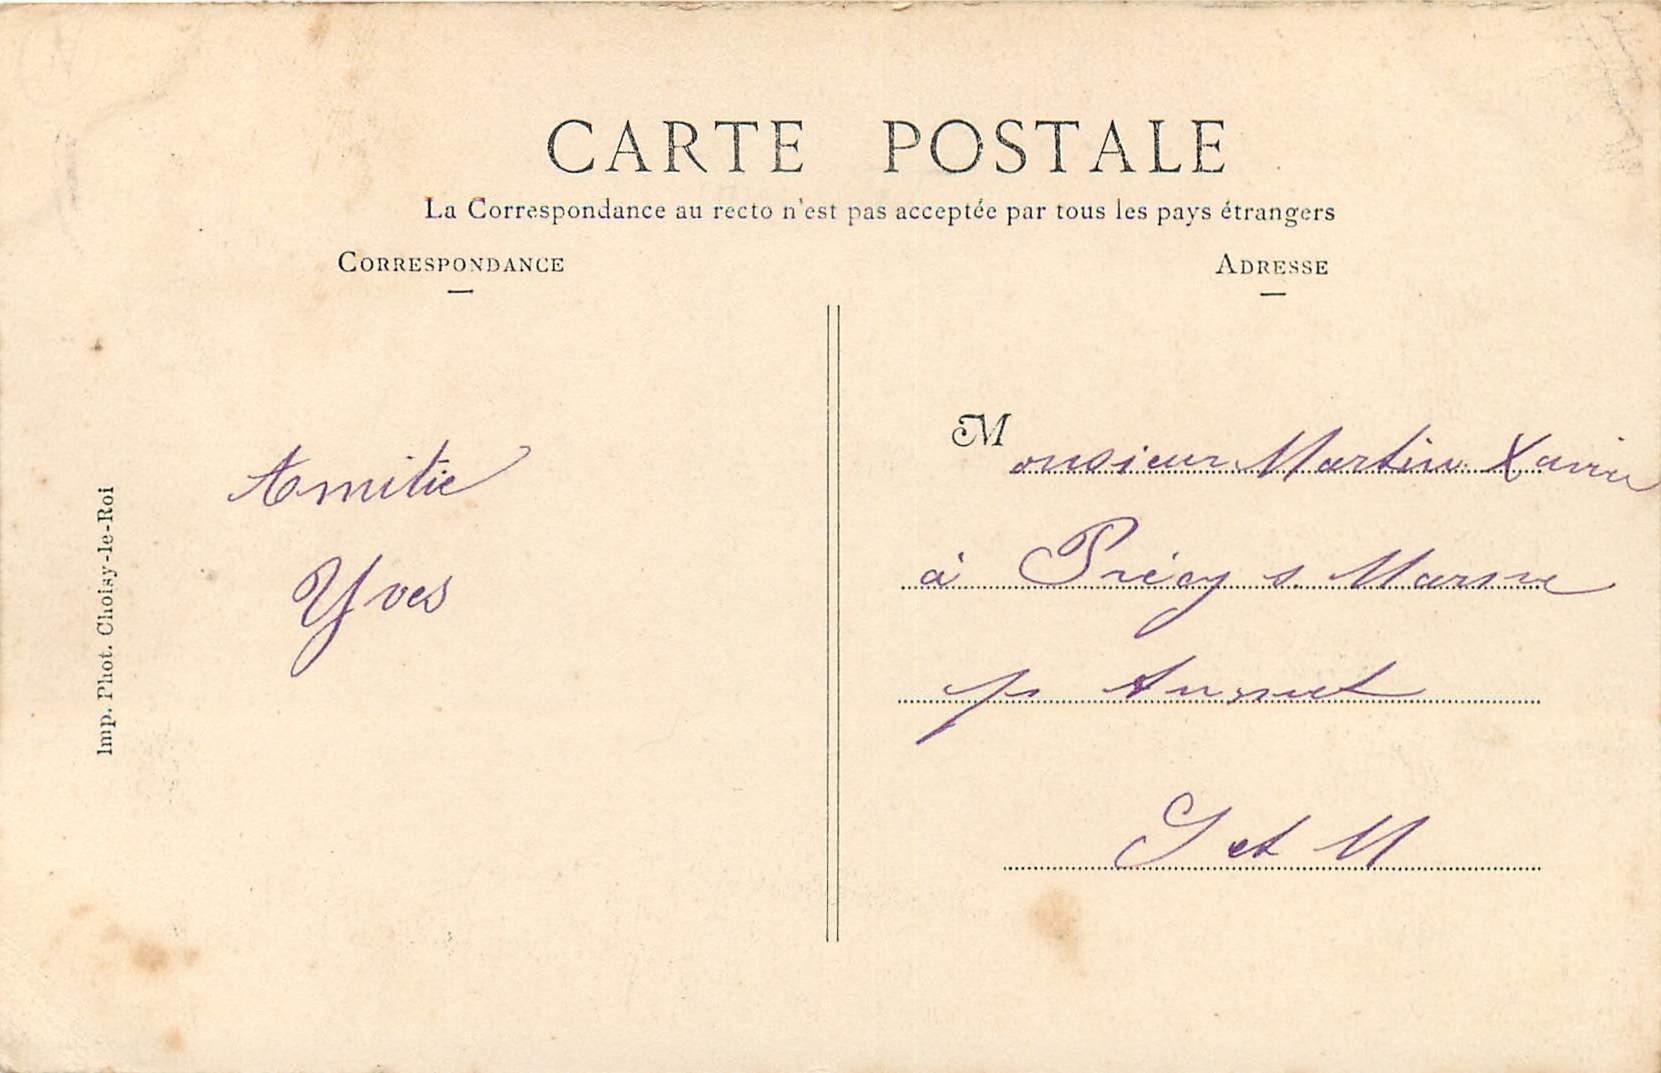 CARTE POSTALE
La Correspondance au recto n'est pas acceptée par tous les pays étrangers
CORRESPONDANCE
ADRESSE
Imp. Phot. Choisy-le-Roi
Amitié
Yves
Monsieur Martin Xavier
à Précy s Marne
pr Annet
S et M